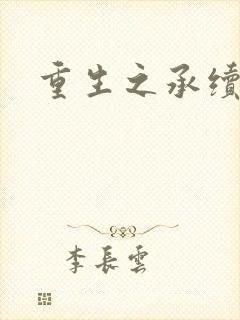 重生之承續
李長雲